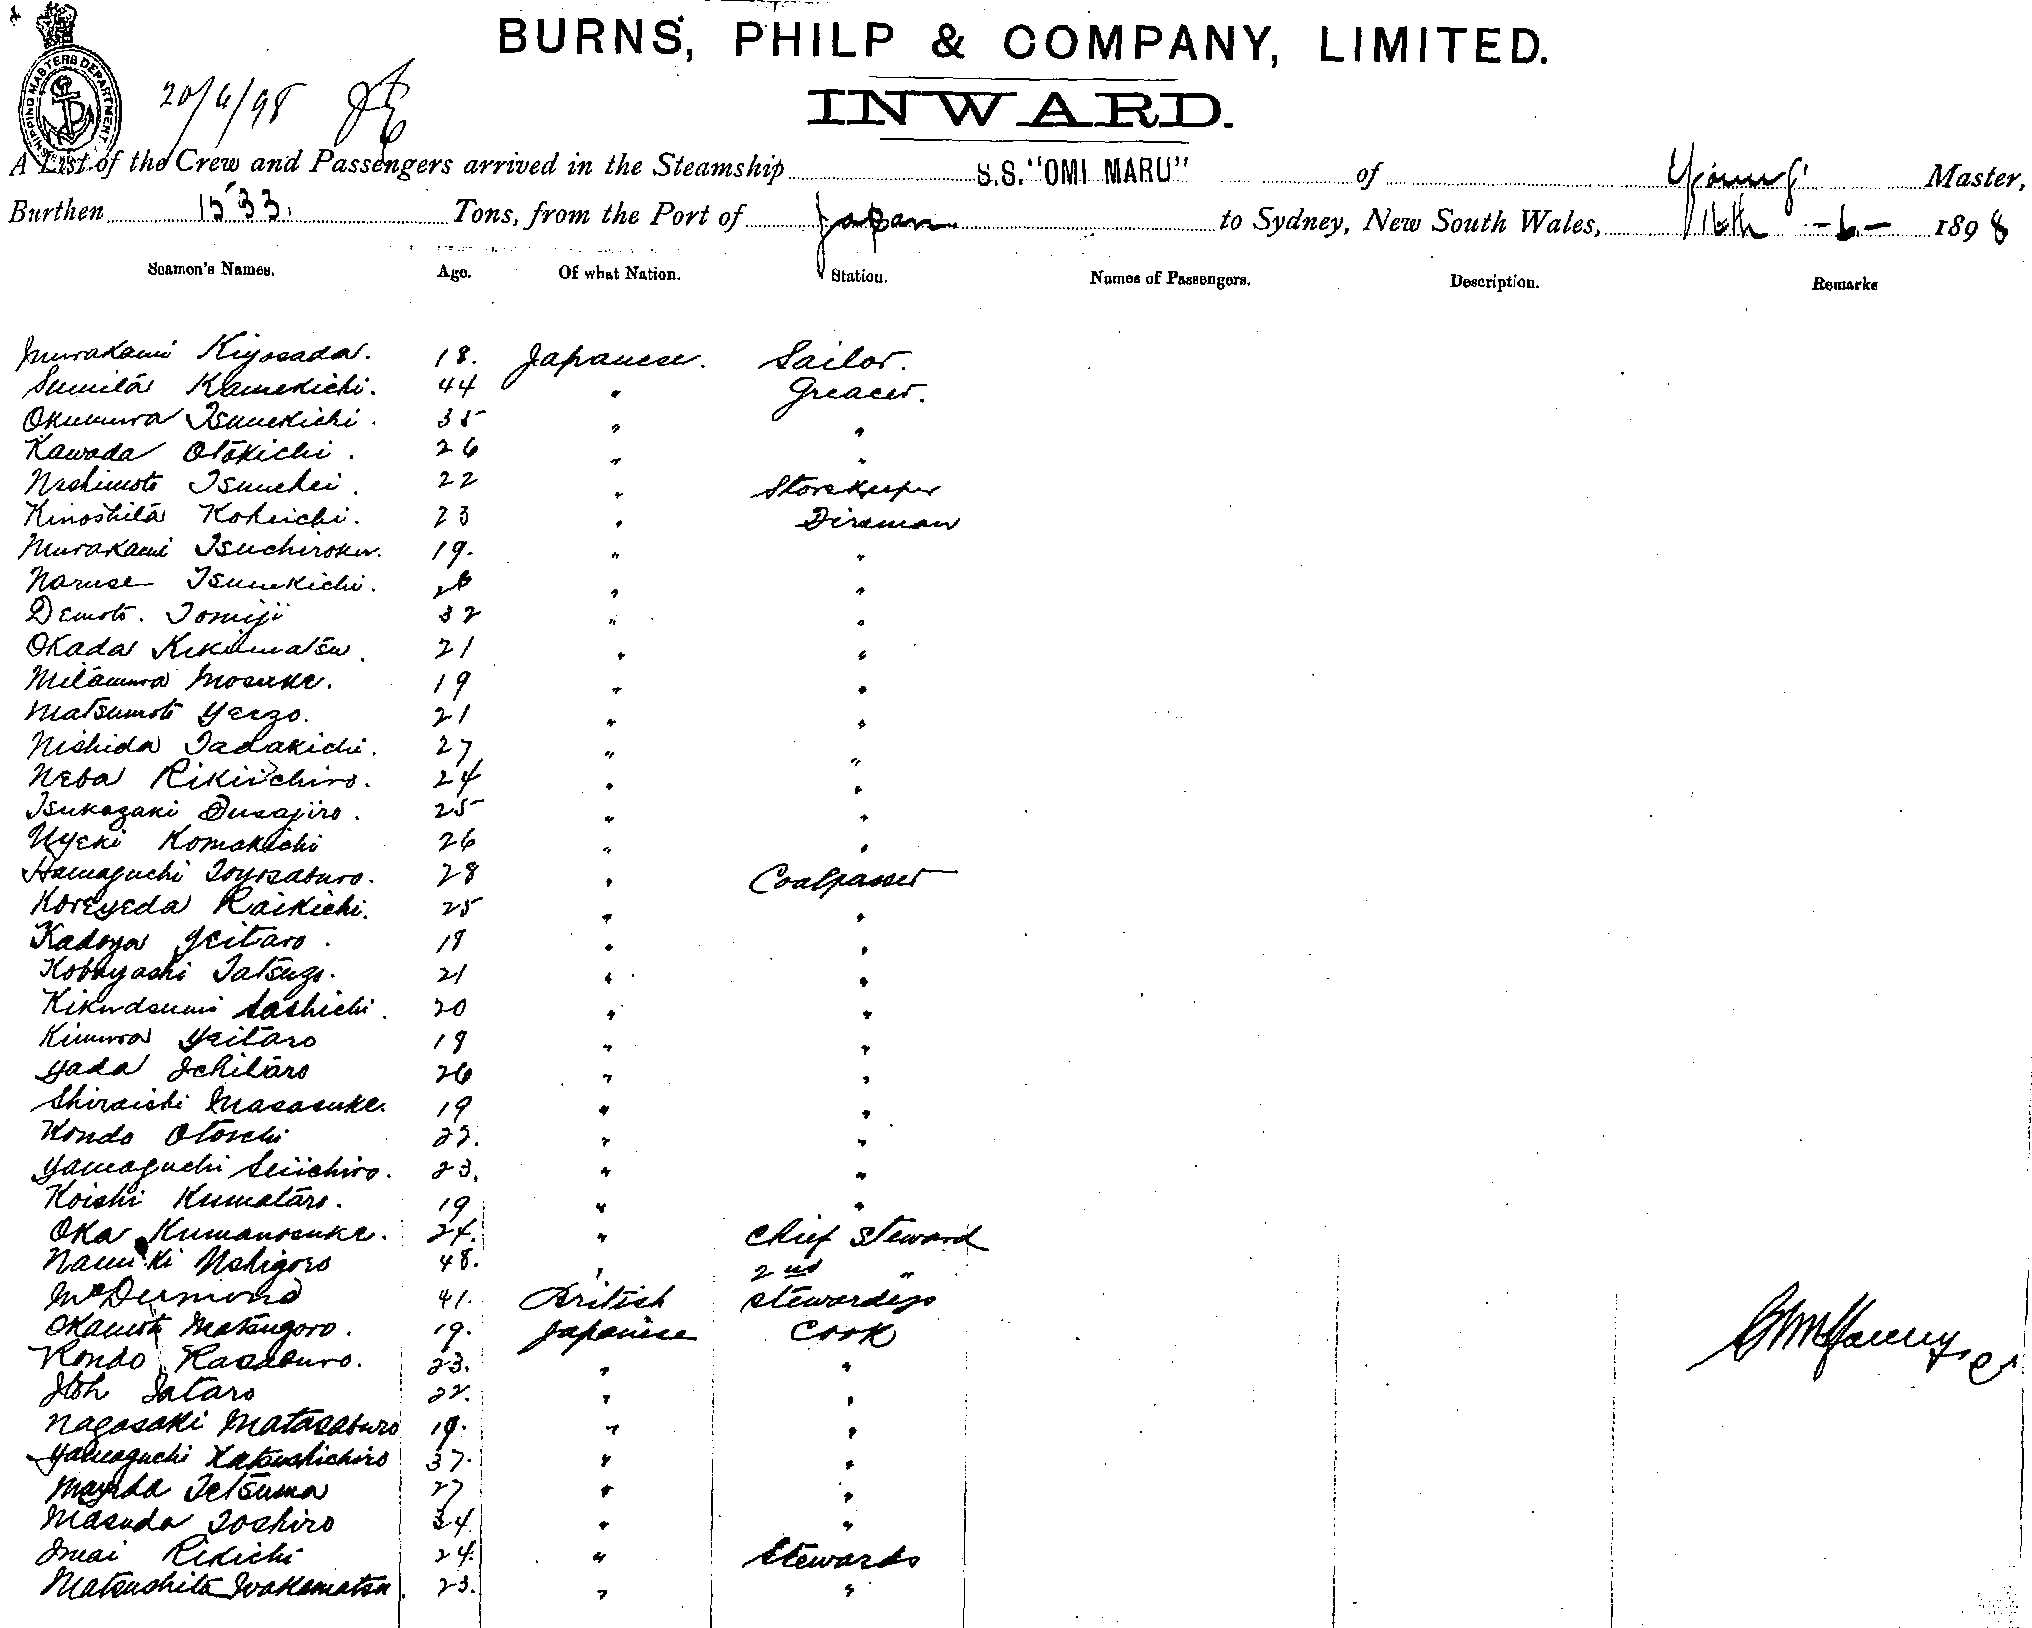 BURNS, PHILP & COMPANY, LIMITED.
SHIPPING MASTERS DEPARTMENT
20/6/98
INWARD.
A List of the Crew and Passengers arrived in the Steamship S.S. "OMI MARU" of Young Master,
Burthen 1533. Tons, from the Port of Japan to Sydney, New South Wales, 16th -6- 1898
Seamen's Names. Age. Of what Nation. Station. Names of Passengers. Description. Remarks
Murakami Kiyosada. 18. Japanese. Sailor.
Sumita Kamekichi. 44 " Greaser.
Okumura Tsunekichi. 35 " "
Kawada Otokichi. 26 " "
Nishimoto Tsunehei. 22 " Storekeeper
Kinoshita Kokichi. 23 " Fireman
Murakami Tsuchiroku. 19. " "
Naruse Tsunekichi. 26 " "
Demoto. Tomiji 32 " "
Okada Kikumatsu. 21 " "
Mitamura Mosuke. 19 " "
Matsumoto Yeizo. 21 " "
Nishida Tadakichi. 27 " "
Neba Rikiichiro. 24 " "
Tsukazaki Fusajiro. 25 " "
Uyeki Komakichi 26 " "
Hamaguchi Toyosaburo. 28 " Coalpasser
Koreyeda Raikichi. 25 " "
Kadoya Yeitaro. 18 " "
Kobayashi Tatsuzo. 21 " "
Kikudzumi Sashichi. 20 " "
Kimura Yeitaro 18 " "
Yada Ichitaro 26 " "
Shiraishi Masasuke. 19 " "
Kondo Otoichi 22. " "
Yamaguchi Seiichiro. 23. " "
Koishi Kumataro. 19 " "
Oka Kumanosuke. 24. " Chief Steward
Namiki Ushigoro 48. " 2nd "
McDermond 41. British Stewardess
Okamoto Matsugoro. 19. Japanese Cook
Kondo Kasaburo. 23. " "
Itoh Sataro 22. " "
Nagasaki Matasaburo 19. " "
Yamaguchi Katsushichiro 37. " "
Mayeda Tetsuma 27 " "
Masuda Toshiro 34. " "
Imai Rikichi 24. " Stewards
Matsushita Wakamatsu. 23. " "